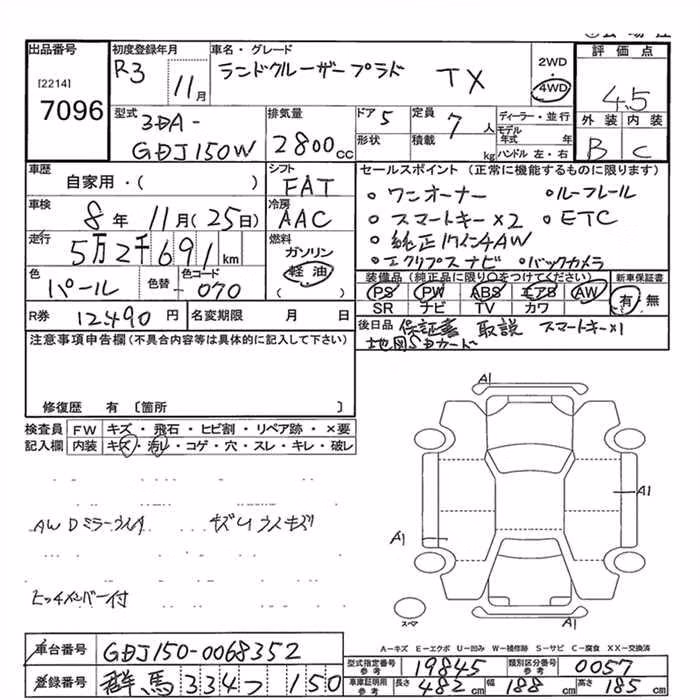 出品番号
[2214]
7096
初度登録年月
R3 11月
車名・グレード
ランドクルーザープラド TX
2WD
4WD
評価点
4.5
外装 内装
B C
型式
3DA-
GDJ150W
排気量
2800cc
ドア 5
形状
定員 7人
積載 kg
ディーラー・並行
モデル年式 年
ハンドル 左・右
車歴
自家用・( )
車検
8年 11月(25日)
走行
5万2千691km
色
パール
色替
カラーコード
070
シフト
FAT
冷房
AAC
燃料
ガソリン
軽油
( )
セールスポイント(正常に機能するものに限ります)
○ワンオーナー ○ルーフレール
○スマートキー×2 ○ETC
○純正17インチAW
○エクリプスナビ ○バックカメラ
装備品(純正品に限り○をつけてください)
PS PW ABS エアB AW
SR ナビ TV カワ
新車保証書
有・無
R券 12,490円
名変期限 月 日
後日品 保証書 取説 スマートキー×1
地図SDカード
注意事項申告欄(不具合内容等は具体的に記入して下さい)
修復歴 有〔箇所 〕
検査員 FW キズ・飛石・ヒビ割・リペア跡・×要
記入欄 内装 キズ・汚レ・コゲ・穴・スレ・キレ・破レ
A1
A1
A1
A1
スマ
AW Dミラーウインカー キズ
ヒッチメンバー付
A-キズ E-エクボ U-凹み W-補修跡 S-サビ C-腐食 XX-交換済
車台番号 GDJ150-0068352
登録番号 群馬 334つ 150
型式指定番号 参考 19845
類別区分番号 参考 0057
車庫証明用 参考 長さ 482cm 幅 188cm 高さ 185cm